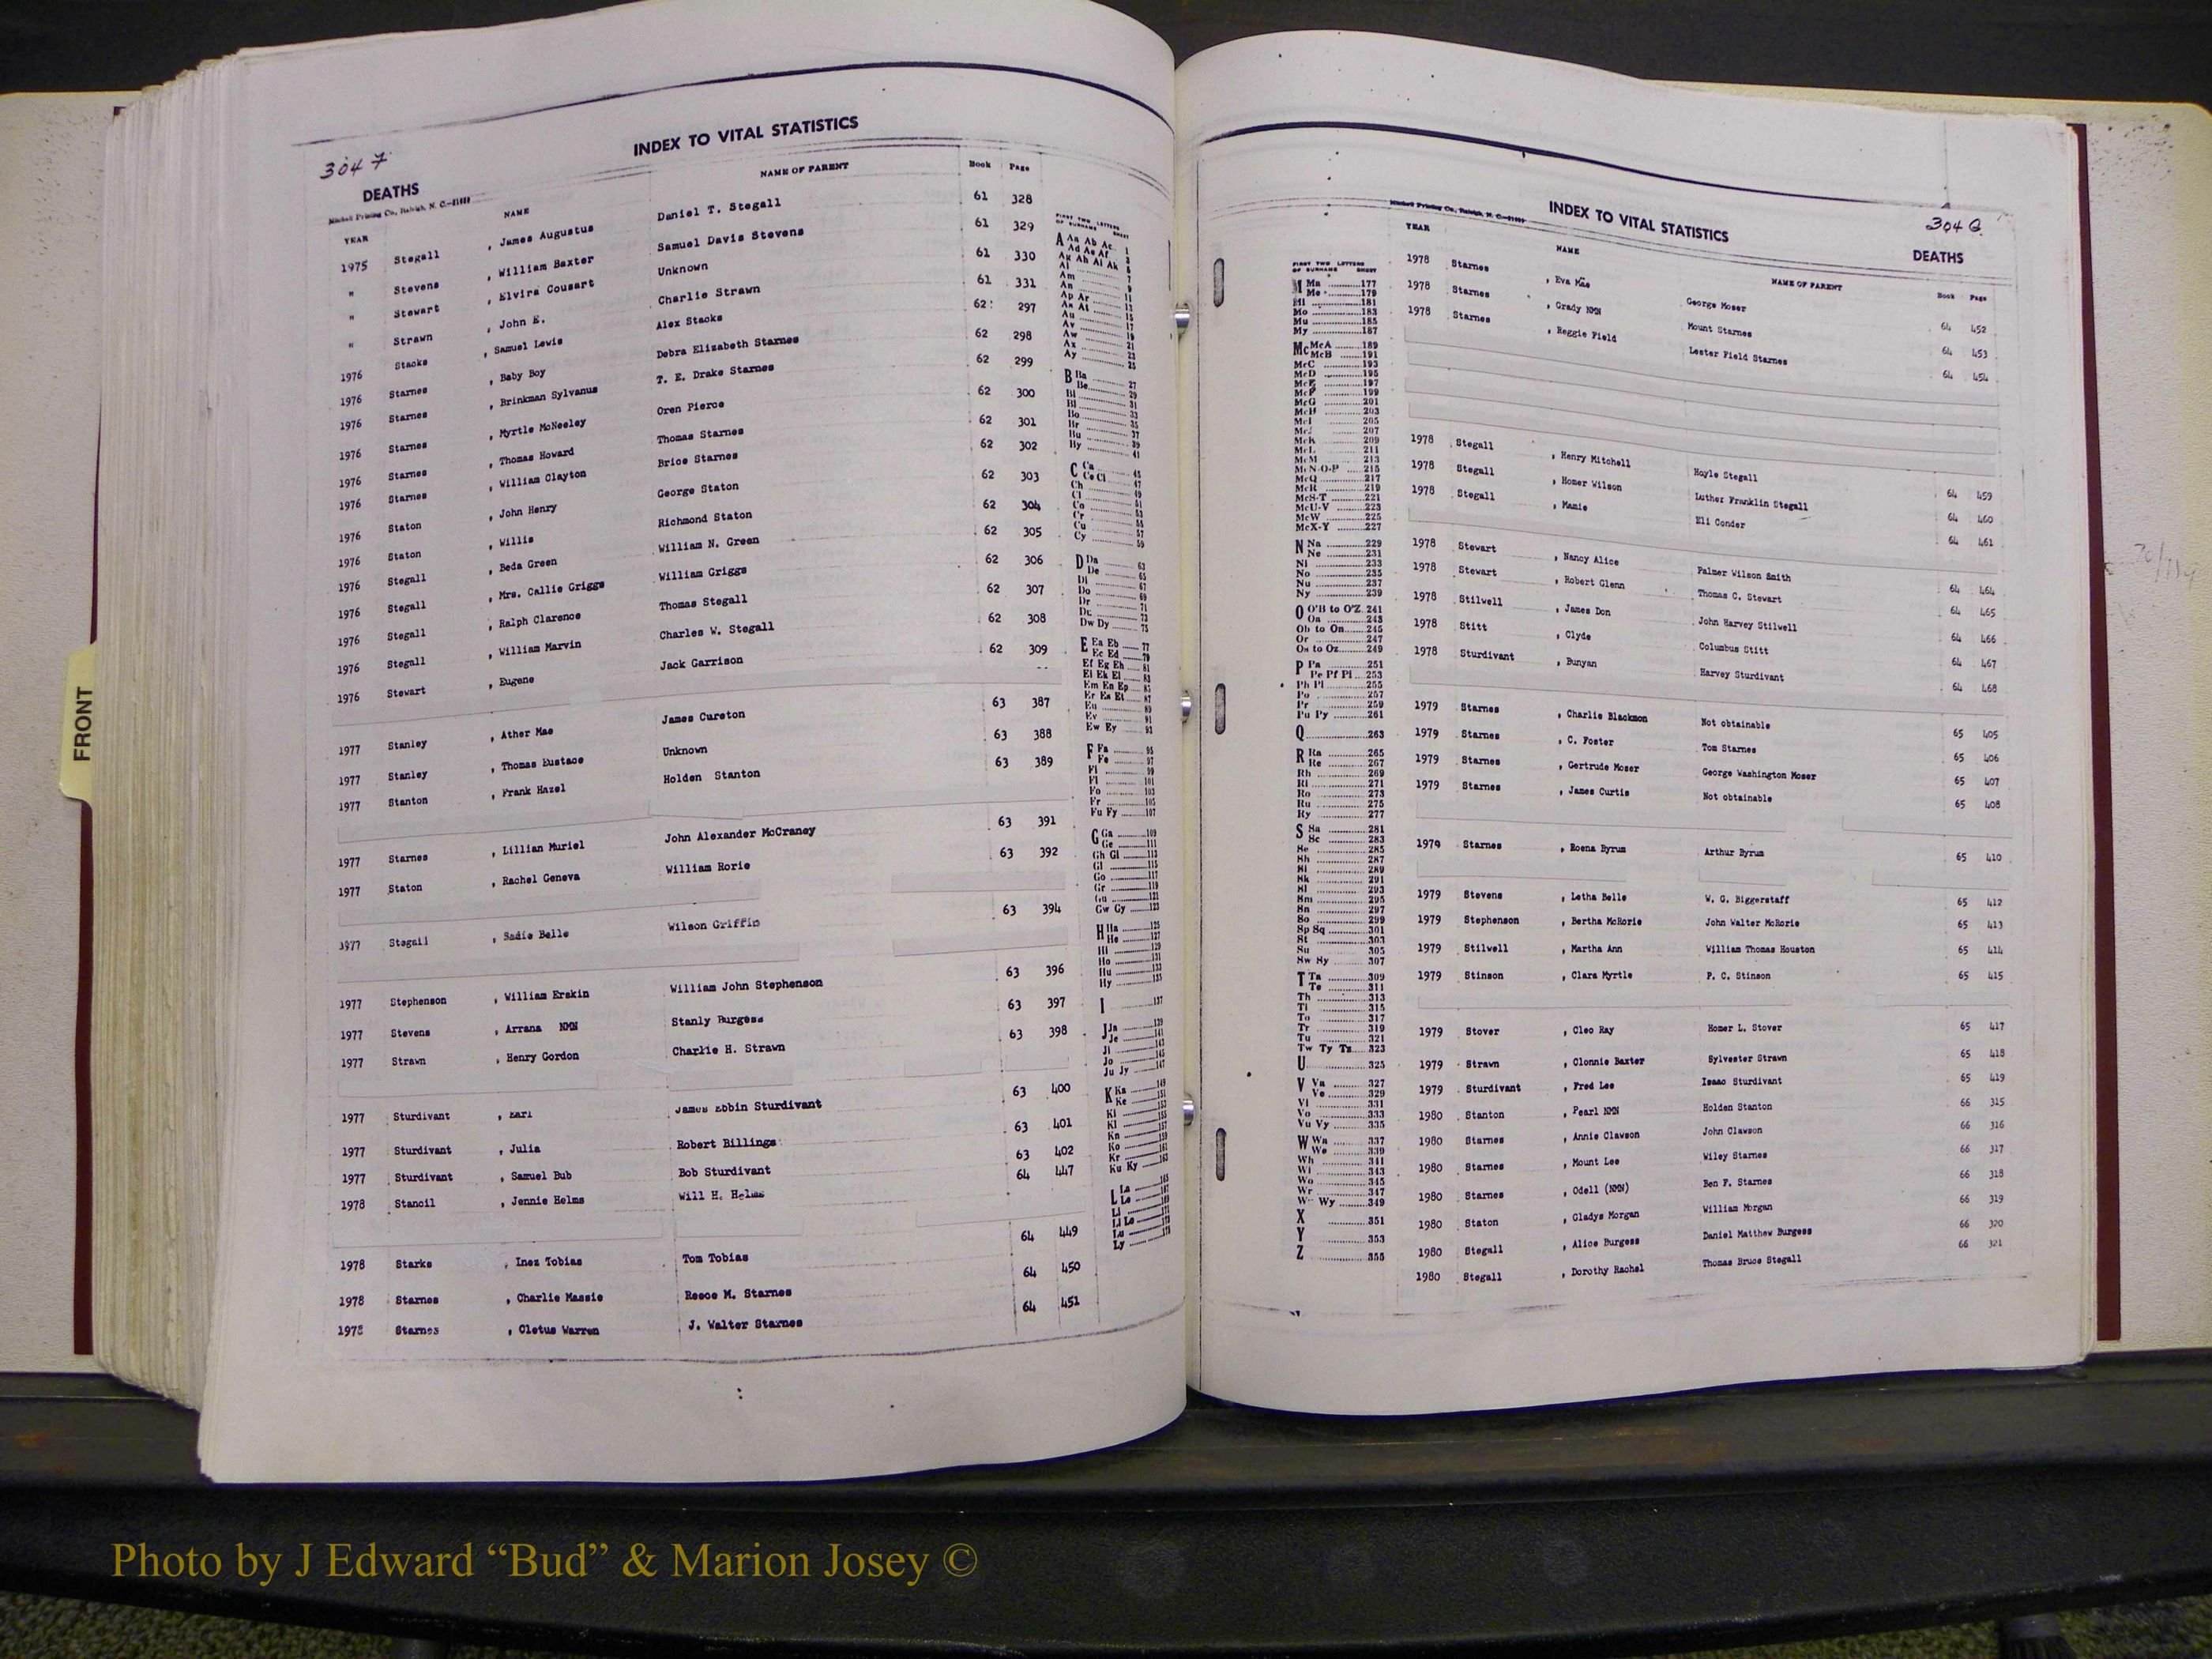 304 7
INDEX TO VITAL STATISTICS
DEATHS
Mitchell Printing Co., Raleigh, N. C.
YEAR NAME NAME OF PARENT Book Page
1975 Stegall , James Augustus Daniel T. Stegall 61 328
" Stevens , William Baxter Samuel Davis Stevens 61 329
" Stewart , Elvira Cousart Unknown 61 330
" Strawn , John E. Charlie Strawn 61 331
1976 Stacks , Samuel Lewis Alex Stacks 62 297
1976 Starnes , Baby Boy Debra Elizabeth Starnes 62 298
1976 Starnes , Brinkman Sylvanus T. E. Drake Starnes 62 299
1976 Starnes , Myrtle McNeeley Oren Pierce 62 300
1976 Starnes , Thomas Howard Thomas Starnes 62 301
1976 Starnes , William Clayton Brice Starnes 62 302
1976 Staton , John Henry George Staton 62 303
1976 Staton , Willie Richmond Staton 62 304
1976 Stegall , Beda Green William N. Green 62 305
1976 Stegall , Mrs. Callie Griggs William Griggs 62 306
1976 Stegall , Ralph Clarence Thomas Stegall 62 307
1976 Stegall , William Marvin Charles W. Stegall 62 308
1976 Stewart , Eugene Jack Garrison 62 309
1977 Stanley , Ather Mae James Cureton 63 387
1977 Stanley , Thomas Eustace Unknown 63 388
1977 Stanton , Frank Hazel Holden Stanton 63 389
1977 Starnes , Lillian Muriel John Alexander McCraney 63 391
1977 Staton , Rachel Geneva William Rorie 63 392
1977 Stegall , Sadie Belle Wilson Griffin 63 394
1977 Stephenson , William Erskin William John Stephenson 63 396
1977 Stevens , Arrana NMN Stanly Burgess 63 397
1977 Strawn , Henry Gordon Charlie H. Strawn 63 398
1977 Sturdivant , Earl James Ebbin Sturdivant 63 400
1977 Sturdivant , Julia Robert Billings 63 401
1977 Sturdivant , Samuel Bub Bob Sturdivant 63 402
1978 Stancil , Jennie Helms Will H. Helms 64 447
1978 Starke , Inez Tobias Tom Tobias 64 449
1978 Starnes , Charlie Massie Reece M. Starnes 64 450
1978 Starnes , Cletus Warren J. Walter Starnes 64 451
FIRST TWO LETTERS
OF SURNAME SHEET
A Aa Ab Ac 1
Ad Ae Af 3
Ag Ah Ai Ak 5
Al 7
Am 9
An 11
Ap Ar 13
As At 15
Au 17
Av 19
Aw 21
Ax 23
Ay 25
B Ba 27
Be 29
Bi 31
Bl 33
Bo 35
Br 37
Bu 39
By 41
C Ca 45
Ce Ci 47
Ch 49
Cl 51
Co 53
Cr 55
Cu 57
Cy 59
D Da 63
De 65
Di 67
Do 69
Dr 71
Du 73
Dw Dy 75
E Ea Eb 77
Ec Ed 79
Ef Eg Eh 81
Ei Ek El 83
Em En Ep 85
Er Es Et 87
Eu 89
Ev 91
Ew Ey 93
F Fa 95
Fe 97
Fi 99
Fl 101
Fo 103
Fr 105
Fu Fy 107
G Ga 109
Ge 111
Gh Gi 113
Gl 115
Go 117
Gr 119
Gu 121
Gw Gy 123
H Ha 125
He 127
Hi 129
Ho 131
Hu 133
Hy 135
I 137
J Ja 139
Je 141
Ji 143
Jo 145
Ju Jy 147
K Ka 149
Ke 151
Ki 153
Kl 155
Kn 159
Ko 159
Kr 161
Ku Ky 163
L La 165
Le 167
Li
Ll Lo
Lu
Ly
FRONT
304 G
INDEX TO VITAL STATISTICS
DEATHS
Mitchell Printing Co., Raleigh, N. C.
YEAR NAME NAME OF PARENT Book Page
1978 Starnes , Eva Mae George Moser 64 452
1978 Starnes , Grady NMN Mount Starnes 64 453
1978 Starnes , Reggie Field Lester Field Starnes 64 454
1978 Stegall , Henry Mitchell Hoyle Stegall 64 459
1978 Stegall , Homer Wilson Luther Franklin Stegall 64 460
1978 Stegall , Mamie Eli Conder 64 461
1978 Stewart , Nancy Alice Palmer Wilson Smith 64 464
1978 Stewart , Robert Glenn Thomas C. Stewart 64 465
1978 Stilwell , James Don John Harvey Stilwell 64 466
1978 Stitt , Clyde Columbus Stitt 64 467
1978 Sturdivant , Bunyan Harvey Sturdivant 64 468
1979 Starnes , Charlie Blackmon Not obtainable 65 405
1979 Starnes , C. Foster Tom Starnes 65 406
1979 Starnes , Gertrude Moser George Washington Moser 65 407
1979 Starnes , James Curtis Not obtainable 65 408
1979 Starnes , Roena Byrum Arthur Byrum 65 410
1979 Stevens , Letha Belle W. G. Biggerstaff 65 412
1979 Stephenson , Bertha McRorie John Walter McRorie 65 413
1979 Stilwell , Martha Ann William Thomas Houston 65 414
1979 Stinson , Clara Myrtle P. C. Stinson 65 415
1979 Stover , Cleo Ray Homer L. Stover 65 417
1979 Strawn , Clonnie Baxter Sylvester Strawn 65 418
1979 Sturdivant , Fred Lee Isaac Sturdivant 65 419
1980 Stanton , Pearl NMN Holden Stanton 66 315
1980 Starnes , Annie Clawson John Clawson 66 316
1980 Starnes , Mount Lee Wiley Starnes 66 317
1980 Starnes , Odell (NMN) Ben F. Starnes 66 318
1980 Staton , Gladys Morgan William Morgan 66 319
1980 Stegall , Alice Burgess Daniel Matthew Burgess 66 320
1980 Stegall , Dorothy Rachel Thomas Bruce Stegall 66 321
FIRST TWO LETTERS
OF SURNAME SHEET
M Ma 177
Me 179
Mi 181
Mo 183
Mu 185
My 187
Mc McA 189
McB 191
McC 193
McD 195
McE 197
McF 199
McG 201
McH 203
McI 205
McJ 207
McK 209
McL 211
McM 213
McN-O-P 215
McQ 217
McR 219
McS-T 221
McU-V 223
McW 225
McX-Y 227
N Na 229
Ne 231
Ni 233
No 235
Nu 237
Ny 239
O O'B to O'Z 241
Oa 243
Ob to On 245
Or 247
Os to Oz 249
P Pa 251
Pe Pf Pi 253
Ph Pl 255
Po 257
Pr 259
Pu Py 261
Q 263
R Ra 265
Re 267
Rh 269
Ri 271
Ro 273
Ru 275
Ry 277
S Sa 281
Sc 283
Se 285
Sh 287
Si 289
Sk 291
Sl 293
Sm 295
Sn 297
So 299
Sp Sq 301
St 303
Su 305
Sw Sy 307
T Ta 309
Te 311
Th 313
Ti 315
To 317
Tr 319
Tu 321
Tw Ty Tz 323
U 325
V Va 327
Ve 329
Vi 331
Vo 333
Vu Vy 335
W Wa 337
We 339
Wh 341
Wi 343
Wo 345
Wr 347
Wy 349
X 351
Y 353
Z 355
Photo by J Edward “Bud” & Marion Josey ©